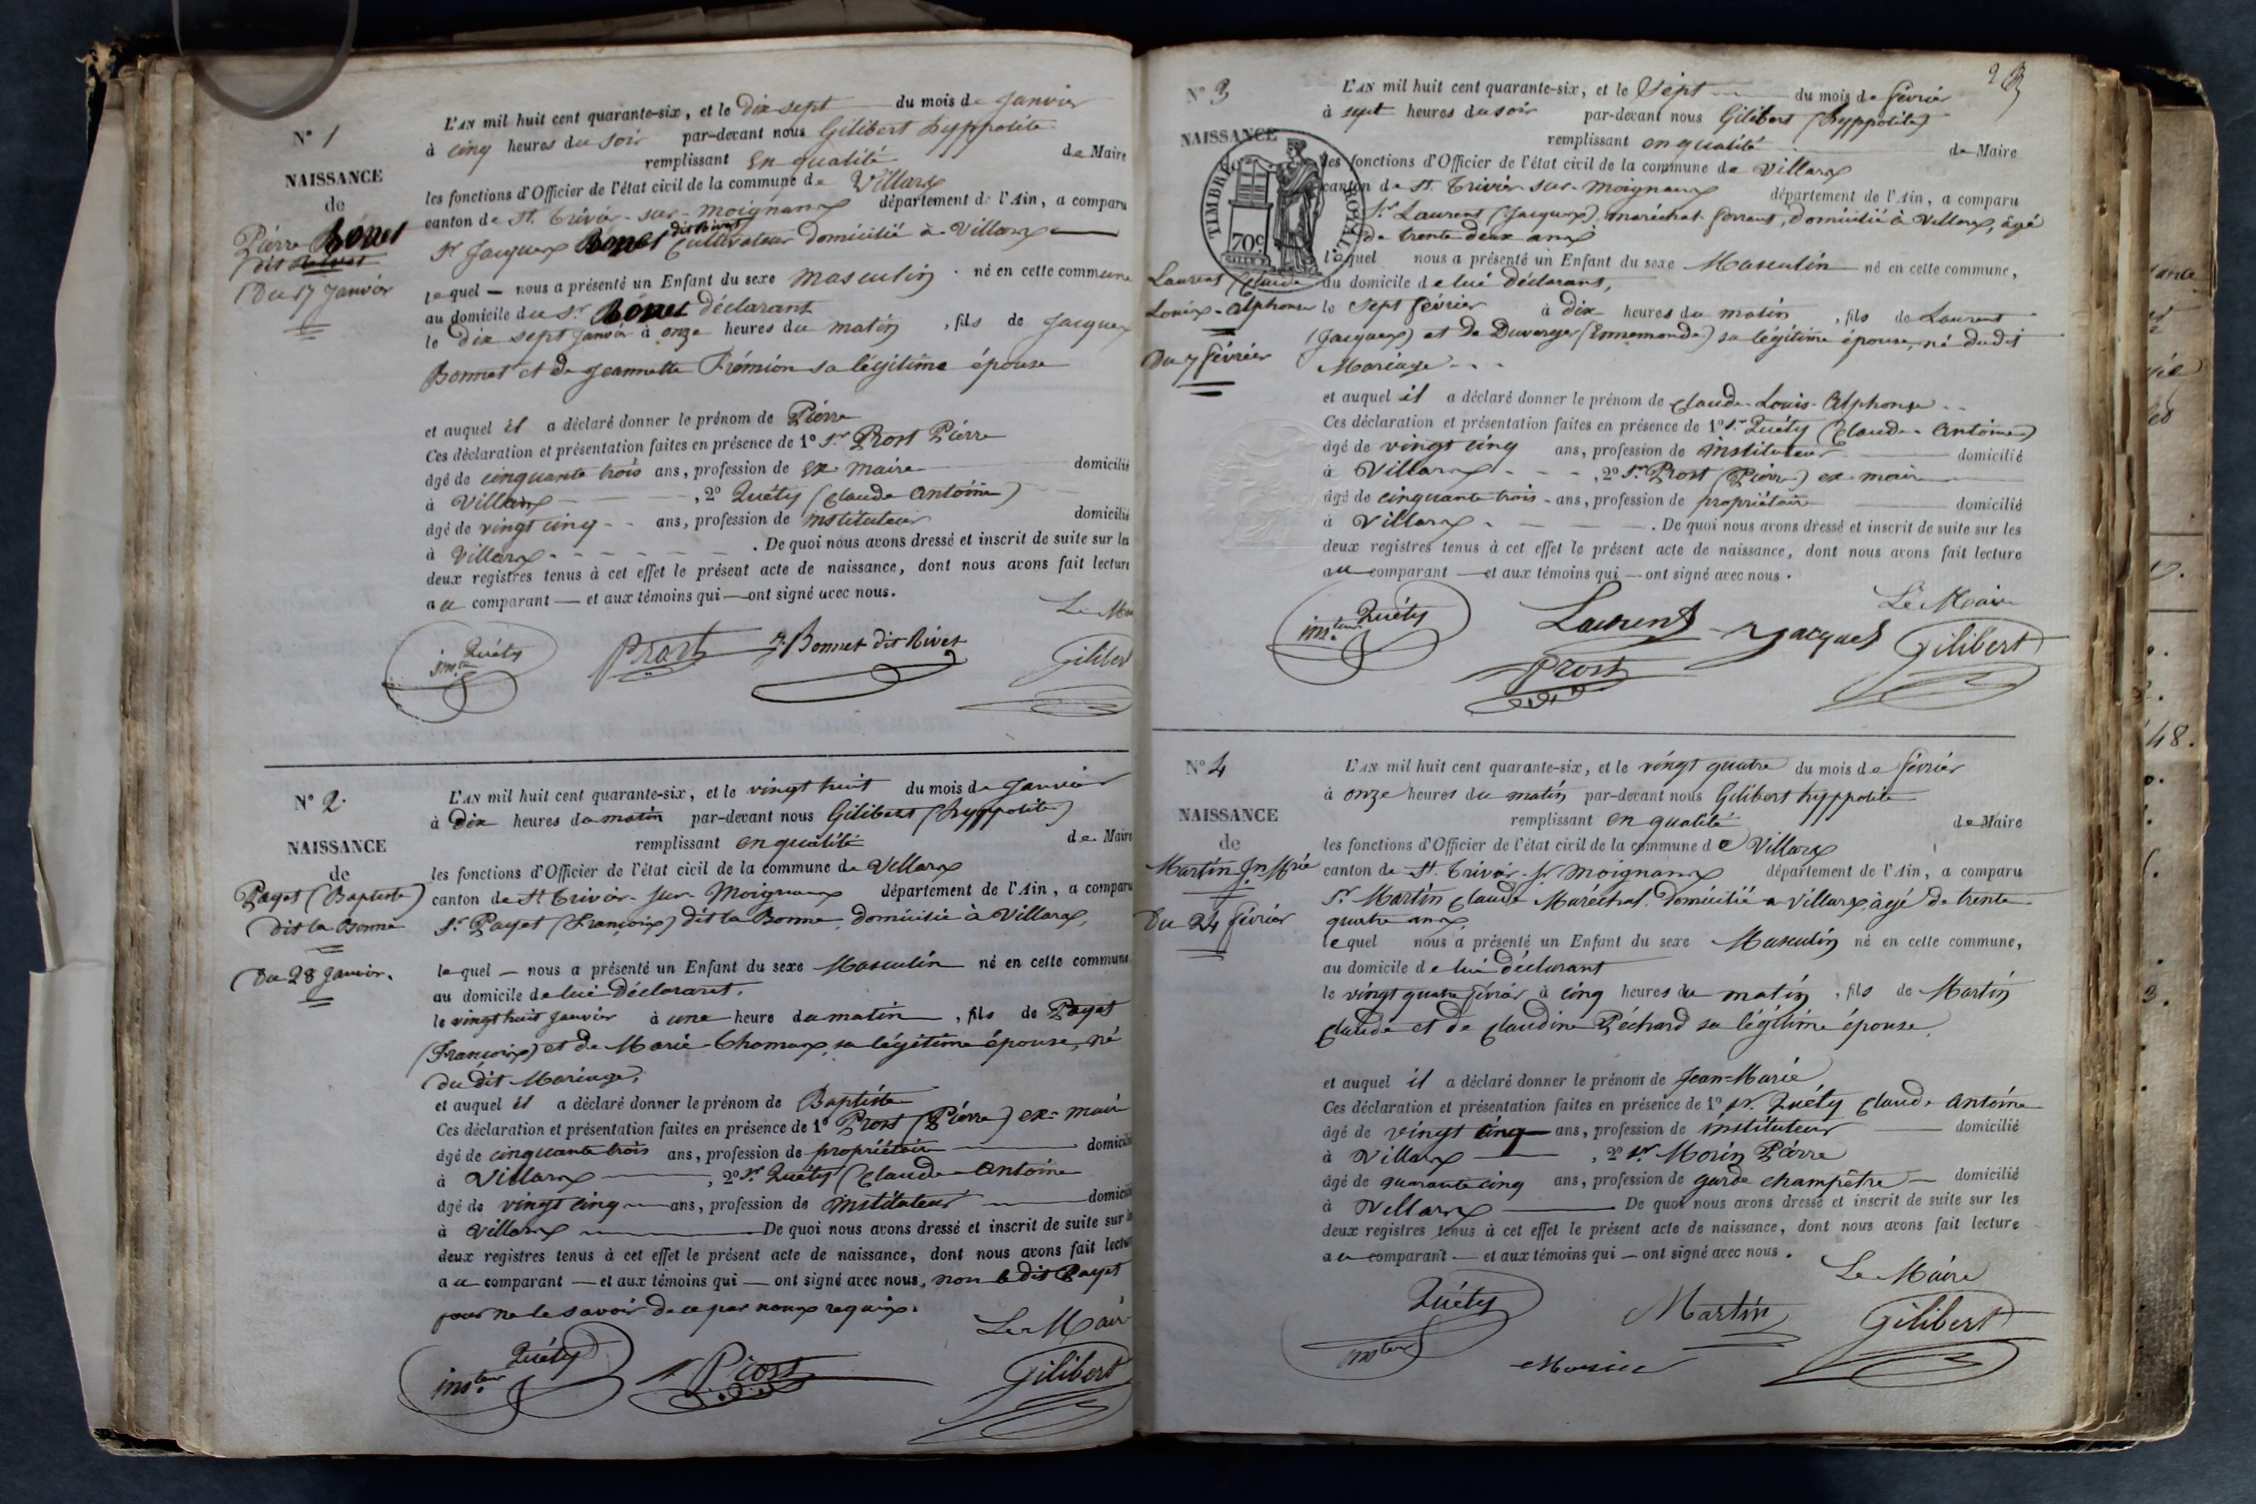 N° 1
NAISSANCE
de
Pierre Bonet
dit Rivet
Du 17 Janvier
L'AN mil huit cent quarante-six, et le dix sept du mois de Janvier
à cinq heures du soir par-devant nous Gilibert hyppolite
remplissant en qualité de Maire
les fonctions d'Officier de l'état civil de la commune de Villars
canton de St. Trivier-sur-Moignans département de l'Ain, a comparu
Sr Jacques Bonet dit Rivet Cultivateur domicilié à Villars
lequel — nous a présenté un Enfant du sexe masculin né en cette commune
au domicile du Sr. Bonet déclarant
le dix sept Janvier à onze heures du matin, fils de Jacques
Bonnet et de Jeannette Frémion sa légitime épouse
et auquel il a déclaré donner le prénom de Pierre
Ces déclaration et présentation faites en présence de 1° Sr Prost Pierre
âgé de cinquante trois ans, profession de ex-maire domicilié
à Villars, 2° Quéty (Claude Antoine)
âgé de vingt cinq ans, profession de instituteur domicilié
à Villars. De quoi nous avons dressé et inscrit de suite sur les
deux registres tenus à cet effet le présent acte de naissance, dont nous avons fait lecture
au comparant — et aux témoins qui — ont signé avec nous.
Le Maire
Quéty insteur Prost Bonnet dit Rivet Gilibert
N° 2
NAISSANCE
de
Payet (Baptiste)
dit la Bonne
Du 28 Janvier.
L'AN mil huit cent quarante-six, et le vingt huit du mois de Janvier
à dix heures du matin par-devant nous Gilibert (hyppolite)
remplissant en qualité de Maire
les fonctions d'Officier de l'état civil de la commune de Villars
canton de St Trivier-sur-Moignans département de l'Ain, a comparu
Sr. Payet (François) dit la Bonne, domicilié à Villars,
lequel — nous a présenté un Enfant du sexe Masculin né en cette commune
au domicile de lui déclarant,
le vingt huit Janvier à une heure du matin, fils de Payet
(François) et de Marie Chomaz, sa légitime épouse, né
du dit Mariage,
et auquel il a déclaré donner le prénom de Baptiste
Ces déclaration et présentation faites en présence de 1° Prost (Pierre) ex-maire
âgé de cinquante trois ans, profession de propriétaire domicilié
à Villars, 2° Sr Quéty (Claude Antoine
âgé de vingt cinq ans, profession de instituteur domicilié
à Villars De quoi nous avons dressé et inscrit de suite sur les
deux registres tenus à cet effet le présent acte de naissance, dont nous avons fait lecture
au comparant — et aux témoins qui — ont signé avec nous, non le dit Payet
pour ne le savoir de ce par nous requis.
Le Maire
Quéty insteur Prost Gilibert
N° 3
NAISSANCE
de
TIMBRE ROYAL
70c
Laurent (Claude
Louis-Alphonse
Du 7 février
L'AN mil huit cent quarante-six, et le Sept du mois de février
à sept heures du soir par-devant nous Gilibert (hyppolite)
remplissant en qualité de Maire
les fonctions d'Officier de l'état civil de la commune de Villars
canton de St. Trivier-sur-Moignans département de l'Ain, a comparu
Sr Laurent (Jacques), maréchal ferrant, domicilié à Villars, âgé
de trente deux ans
lequel nous a présenté un Enfant du sexe Masculin né en cette commune,
au domicile de lui déclarant,
le Sept février à dix heures du matin, fils de Laurent
(Jacques) et de Duverger (Ennemonde) sa légitime épouse, né dudit
Mariage
et auquel il a déclaré donner le prénom de Claude-Louis-Alphonse
Ces déclaration et présentation faites en présence de 1° Sr Quéty (Claude-Antoine)
âgé de vingt cinq ans, profession de instituteur domicilié
à Villars, 2° Sr Prost (Pierre) ex-maire
âgé de cinquante trois ans, profession de propriétaire domicilié
à Villars. De quoi nous avons dressé et inscrit de suite sur les
deux registres tenus à cet effet le présent acte de naissance, dont nous avons fait lecture
au comparant — et aux témoins qui — ont signé avec nous.
Le Maire
Quéty insteur Laurent Jacques Gilibert
Prost
N° 4
NAISSANCE
de
Martin Jn Mrie
Du 24 février
L'AN mil huit cent quarante-six, et le vingt quatre du mois de février
à onze heures du matin par-devant nous Gilibert hyppolite
remplissant en qualité de Maire
les fonctions d'Officier de l'état civil de la commune de Villars
canton de St. Trivier-sr Moignans département de l'Ain, a comparu
Sr. Martin Claude Maréchal domicilié à Villars âgé de trente
quatre ans,
lequel nous a présenté un Enfant du sexe Masculin né en cette commune,
au domicile de lui déclarant
le vingt quatre février à cinq heures du matin, fils de Martin
Claude et de Claudine Péchard sa légitime épouse,
et auquel il a déclaré donner le prénom de Jean-Marie
Ces déclaration et présentation faites en présence de 1° Sr. Quéty Claude Antoine
âgé de vingt cinq ans, profession de instituteur domicilié
à Villars, 2° Sr Morin Pierre
âgé de quarante cinq ans, profession de garde champêtre domicilié
à Villars De quoi nous avons dressé et inscrit de suite sur les
deux registres tenus à cet effet le présent acte de naissance, dont nous avons fait lecture
au comparant — et aux témoins qui — ont signé avec nous.
Le Maire
Quéty insteur Martin Gilibert